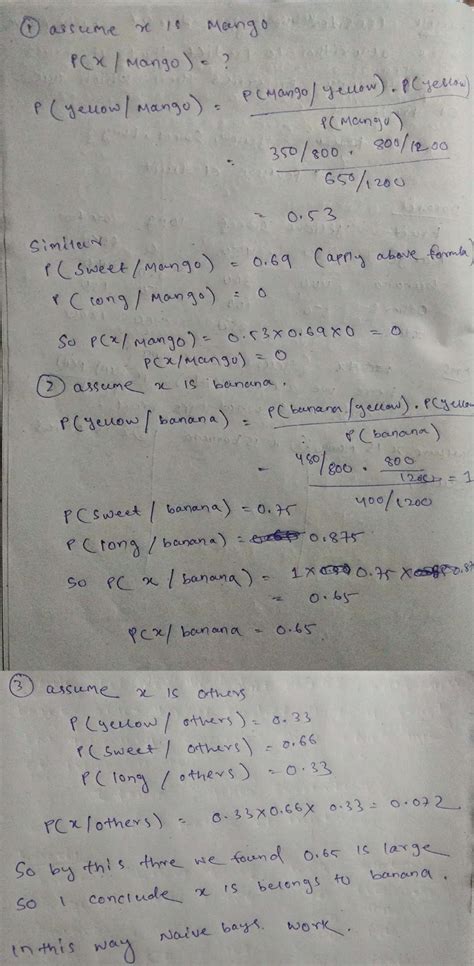 ① assume x is Mango
P(x / Mango) = ?
P(yellow / Mango) = P(Mango / yellow) . P(yellow)
P(Mango)
= 350/800 . 800/1200
650/1200
= 0.53
Similar
P(sweet / Mango) = 0.69 (apply above formula)
P(long / Mango) = 0
So P(x / Mango) = 0.53 x 0.69 x 0 = 0
P(x / Mango) = 0
② assume x is banana.
P(yellow / banana) = P(banana / yellow) . P(yellow
P(banana)
= 400/800 . 800/1200 = 1
400/1200
P(sweet / banana) = 0.75
P(long / banana) = 0.875
So P( x / banana) = 1 x 0.75 x 0.87
= 0.65
P(x / banana = 0.65
③ assume x is others
P(yellow / others) = 0.33
P(sweet / others) = 0.66
P(long / others) = 0.33
P(x / others) = 0.33 x 0.66 x 0.33 = 0.072
So by this thre we found 0.65 is large
So I conclude x is belongs to banana.
In this way Naive bays work.